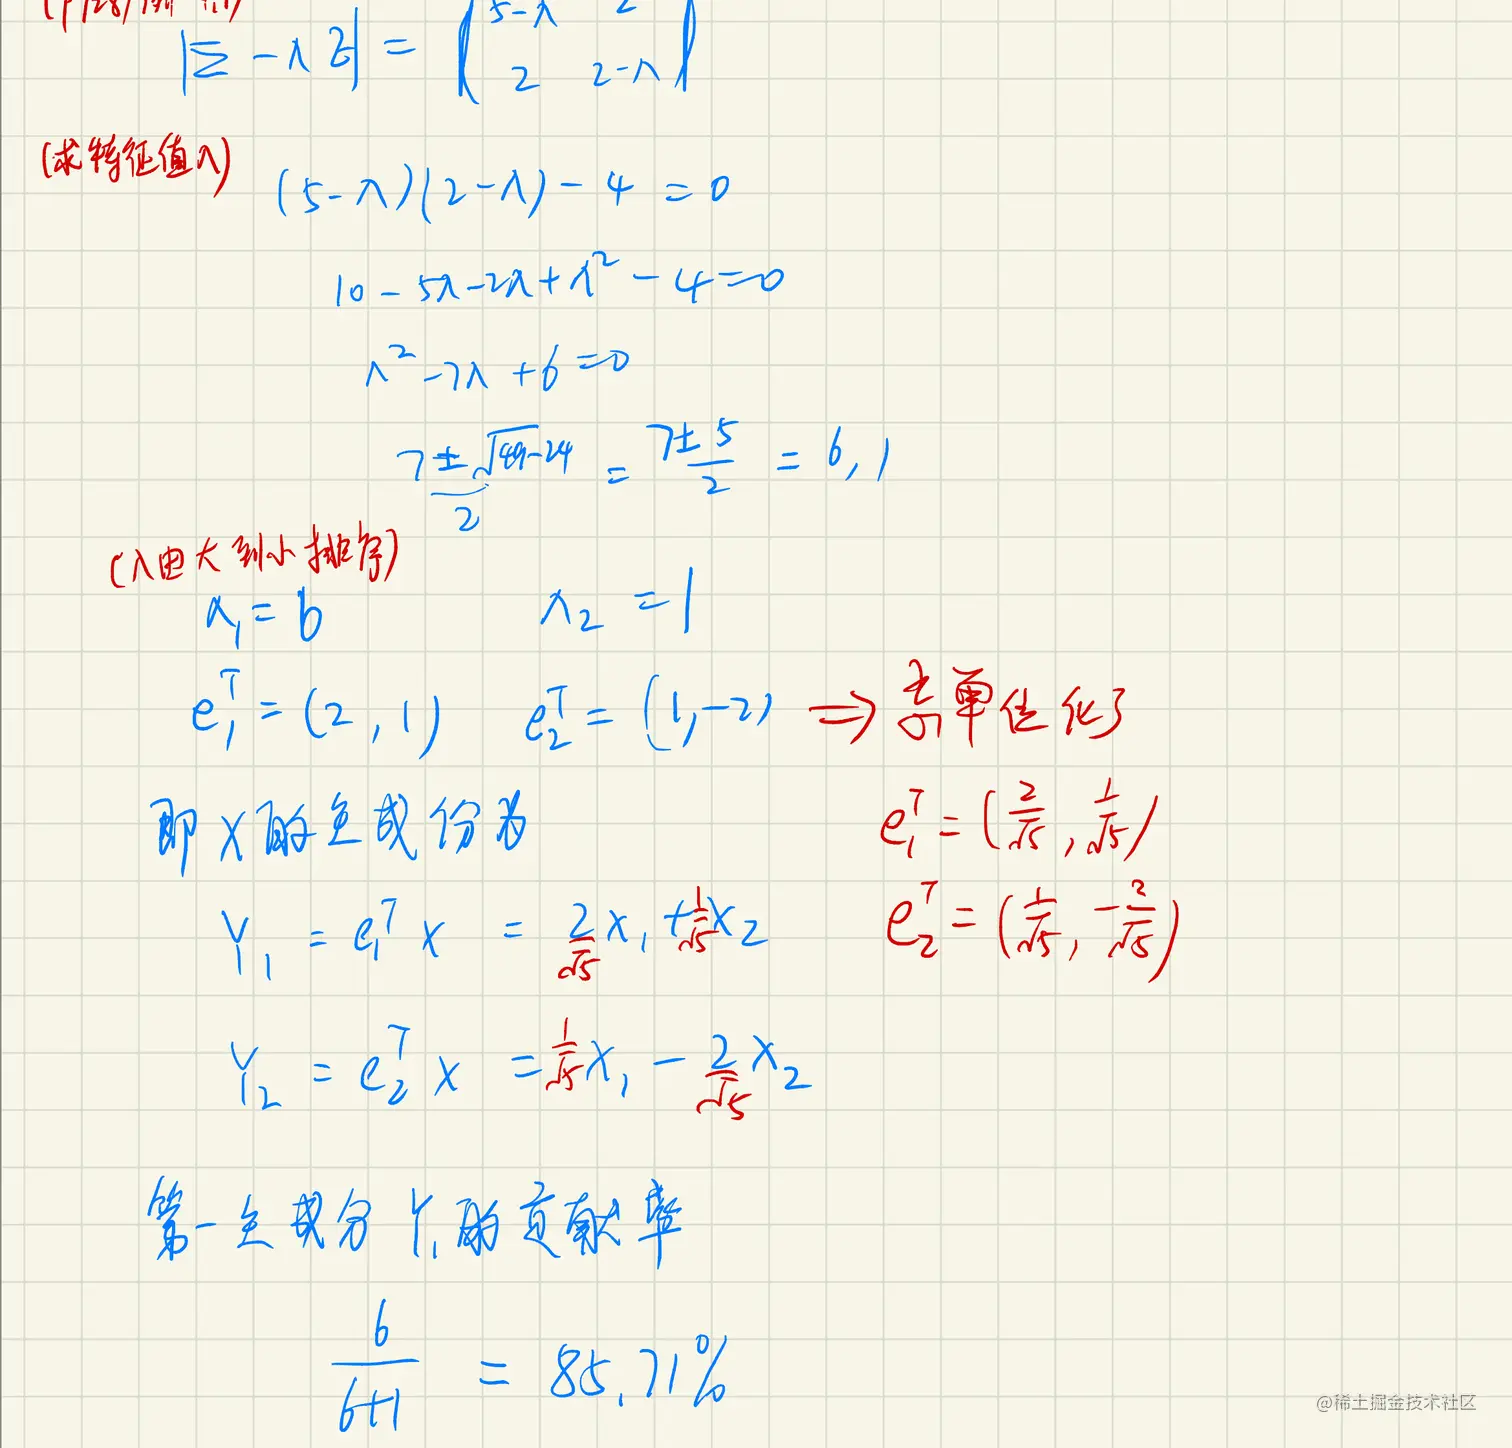 |Σ - λE| = | 5-λ 2
2 2-λ |
(求特征值λ)
(5-λ)(2-λ) - 4 = 0
10 - 5λ - 2λ + λ² - 4 = 0
λ² - 7λ + 6 = 0
7±√49-24 / 2 = 7±5 / 2 = 6, 1
(λ由大到小排序)
λ₁ = 6 λ₂ = 1
e₁ᵀ = (2, 1) e₂ᵀ = (1, -2) ⇒ 单位化了
e₁ᵀ = (2/√5, 1/√5)
即X的主成份为
Y₁ = e₁ᵀ X = 2/√5 X₁ + 1/√5 X₂ e₂ᵀ = (1/√5, -2/√5)
Y₂ = e₂ᵀ X = 1/√5 X₁ - 2/√5 X₂
第一主成分Y₁的贡献率
6 / 6+1 = 85.71%
@稀土掘金技术社区